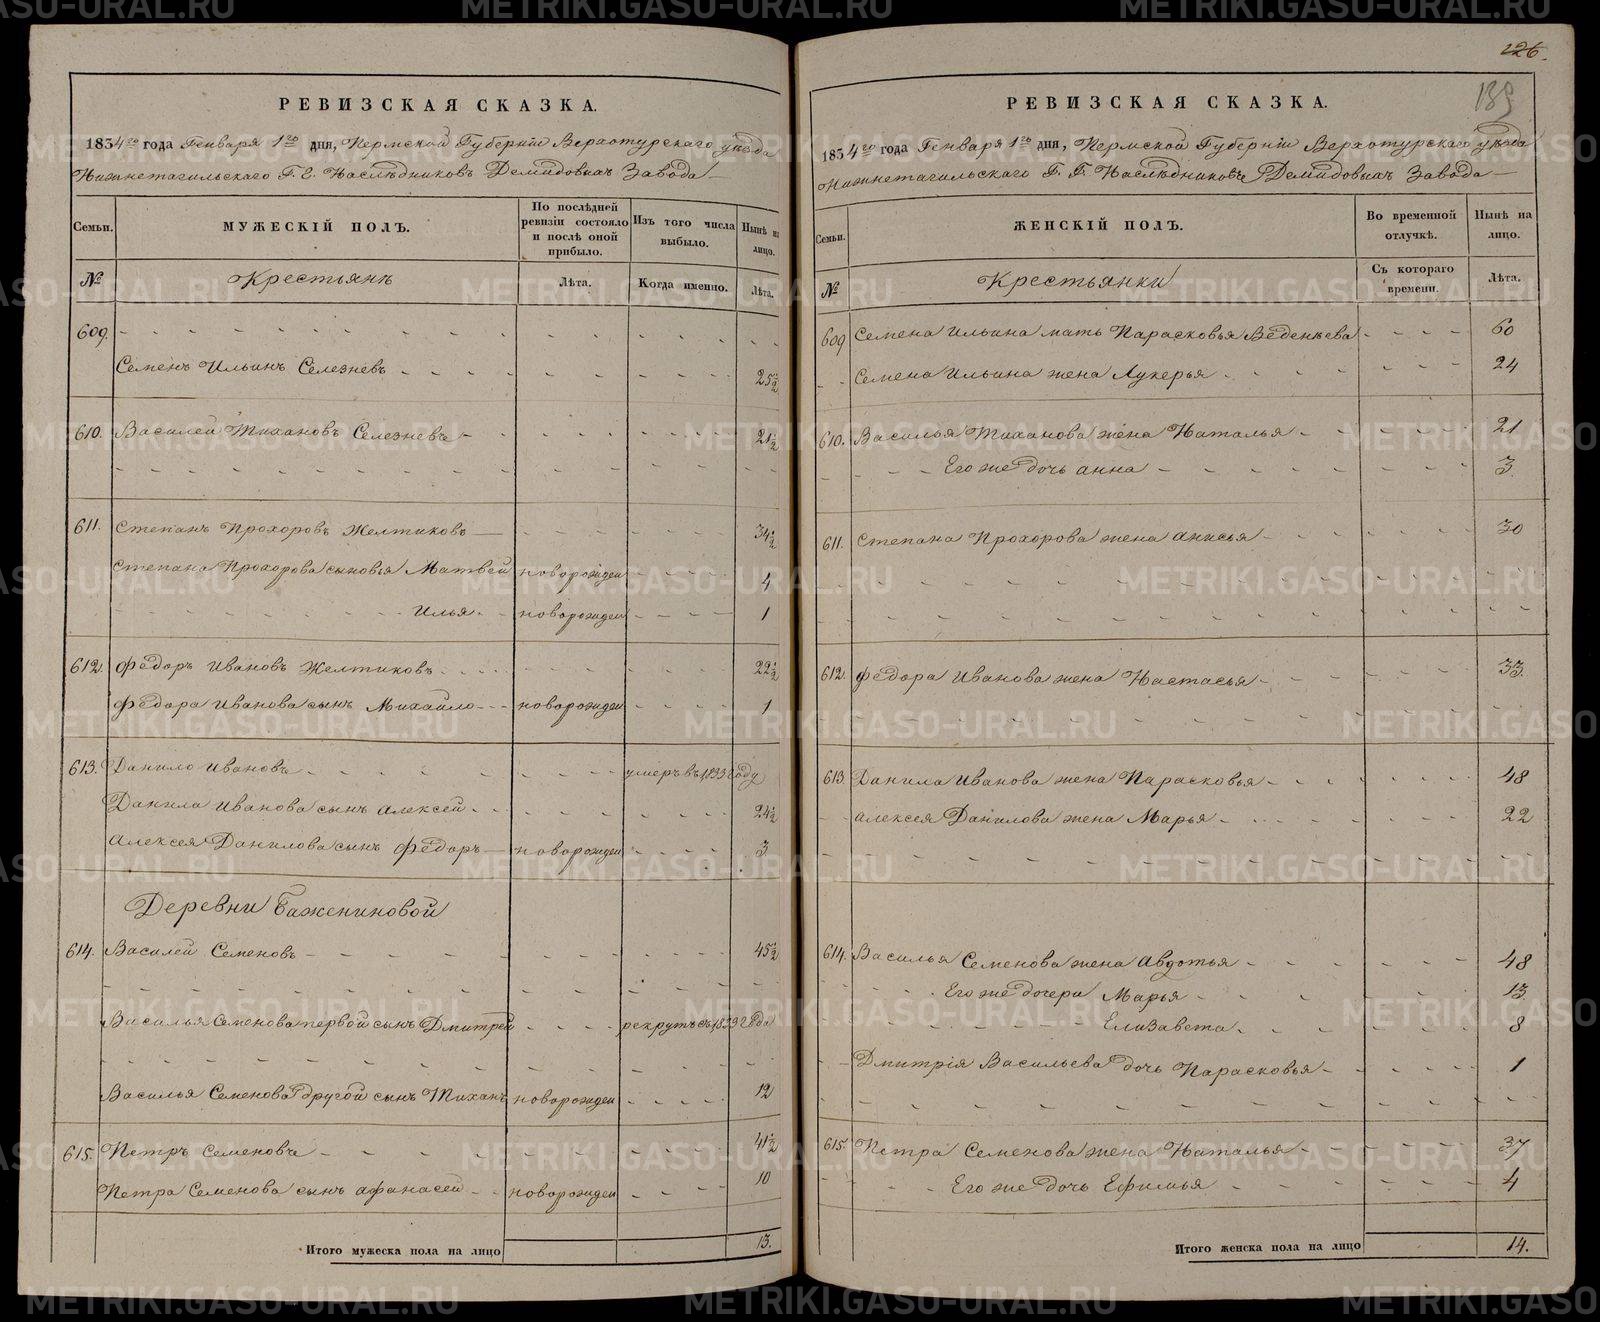 РЕВИЗСКАЯ СКАЗКА.
1834го года Генваря 1го дня, Пермской Губерніи Верхотурскаго уѣзда
Нижнетагильскаго Г. Г. Наслѣдниковъ Демидовыхъ Завода
Семьи.
МУЖЕСКІЙ ПОЛЪ.
По послѣдней ревизіи состояло и послѣ оной прибыло.
Изъ того числа выбыло.
Нынѣ на лицо.
№
Крестьянъ
Лѣта.
Когда именно.
Лѣта.
609.
Семенъ Ильинъ Селезневъ 25½
610. Василей Тихановъ Селезневъ 21½
611. Степанъ Прохоровъ Желтиковъ 34½
Степана Прохорова сыновья Матвей новорожден 4
Илья новорожден 1
612. Федоръ Ивановъ Желтиковъ 22½
Федора Иванова сынъ Михайло новорожден 1
613. Данило Ивановъ умеръ въ 1833 году
Данила Иванова сынъ Алексей 24½
Алексея Данилова сынъ Федоръ новорожден 3
Деревни Бажениновой
614. Василей Семеновъ 45½
Василья Семенова первой сынъ Дмитрей рекрутъ съ 1833 года
Василья Семенова другой сынъ Тиханъ новорожден 12
615. Петръ Семеновъ 41½
Петра Семенова сынъ Афанасей новорожден 10
Итого мужеска пола на лицо 13.
126.
139
РЕВИЗСКАЯ СКАЗКА.
1834го года Генваря 1го дня, Пермской Губерніи Верхотурскаго уѣзда
Нижнетагильскаго Г. Г. Наслѣдниковъ Демидовыхъ Завода
Семьи.
ЖЕНСКІЙ ПОЛЪ.
Во временной отлучкѣ.
Нынѣ на лицо.
№
Крестьянки
Съ котораго времени.
Лѣта.
609 Семена Ильина мать Парасковья Веденѣева 60
Семена Ильина жена Лукерья 24
610. Василья Тиханова жена Наталья 21
Его же дочь Анна 3
611. Степана Прохорова жена Анисья 30
612. Федора Иванова жена Настасья 33.
613 Данила Иванова жена Парасковья 48
Алексея Данилова жена Марья 22
614. Василья Семенова жена Авдотья 48
Его же дочери Марья 13
Елизавета 8
Дмитрія Васильева дочь Парасковья 1
615. Петра Семенова жена Наталья 37
Его же дочь Ефимья 4
Итого женска пола на лицо 14.
METRIKI.GASO-URAL.RU